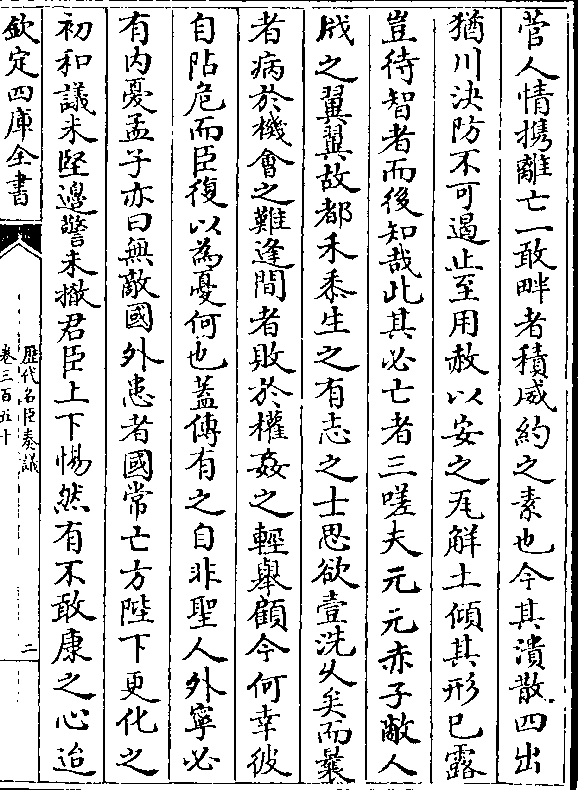 菅人情携離亡一敢畔者積威約之素也今其潰散四出
猶川决防不可遏止至用赦以安之瓦解土傾其形已露
豈待智者而後知哉此其必亡者三嗟夫元元赤子敵人
戕之翼翼故都禾黍生之有志之士思欲壹洗乆矣而曩
者病於機會之難逢間者敗於權姦之輕舉顧今何幸彼
自阽危而臣復以為憂何也蓋傳有之自非聖人外寧必
有内憂孟子亦曰無敵國外患者國常亡方陛下更化之
初和議未堅邊警未撤君臣上下惕然有不敢康之心迨
欽定四庫全書
歴代名臣奏議
卷三百五十
二